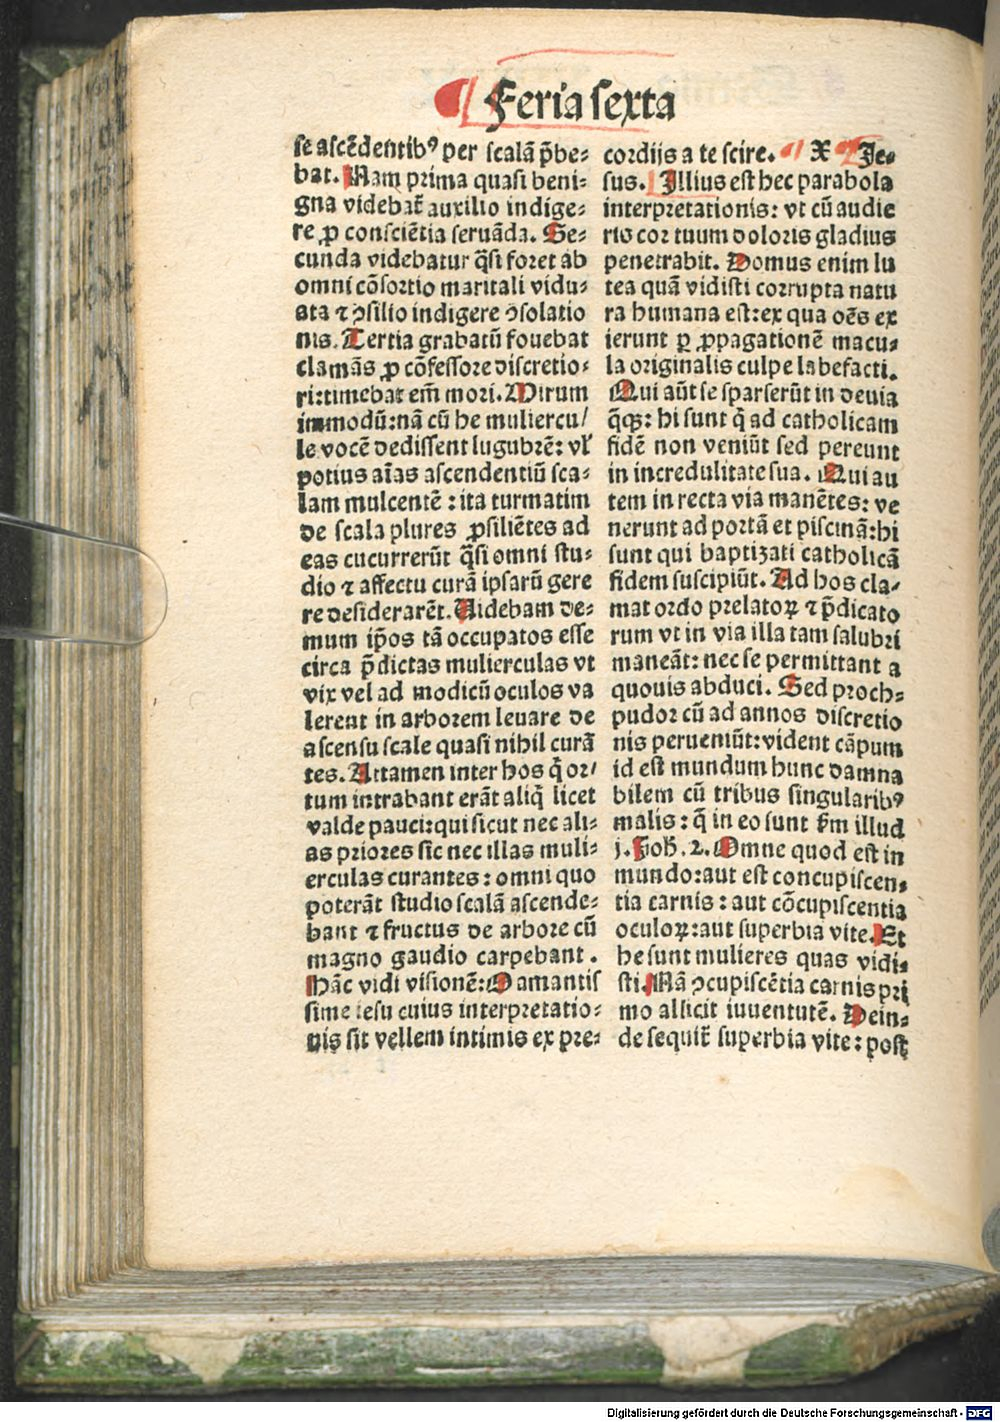 Feria sexta
se ascēdentib⁹ per scalā p̄be⸗
bat. Nam prima quasi beni⸗
gna videbat̄ auxilio indige⸗
re ꝓ consciētia seruāda. Se⸗
cunda videbatur q̄si foret ab
omni cōsortio maritali vidu⸗
ata ⁊ ꝯsilio indigere ꝯsolatio
nis. Tertia grabatū fouebat
clamās ꝓ cōfessore discretio⸗
ri: timebat em̄ mori. Mirum
immodū: nā cū he muliercu/
le vocē dedissent lugubrē: vl̄
potius aīas ascendentiū sca⸗
lam mulcentē: ita turmatim
de scala plures ꝓsiliētes ad
eas cucurrerūt q̄si omni stu⸗
dio ⁊ affectu curā ipsarū gere
re desiderarēt. Uidebam de⸗
mum ip̄os tā occupatos esse
circa p̄dictas mulierculas vt
vix vel ad modicū oculos va
lerent in arborem leuare de
ascensu scale quasi nihil curā
tes. Attamen inter hos q̄ or/
tum intrabant erāt aliq̄ licet
valde pauci: qui sicut nec ali⸗
as priores sic nec illas muli⸗
erculas curantes: omni quo
poterāt studio scalā ascende⸗
bant ⁊ fructus de arbore cū
magno gaudio carpebant.
Hāc vidi visionē: O amantis
sime iesu cuius interpretatio⸗
nis sit vellem intimis ex pre⸗
cordijs a te scire. X Je⸗
sus. Illius est hec parabola
interpretationis: vt cū audie
ris cor tuum doloris gladius
penetrabit. Domus enim lu
tea quā vidisti corrupta natu
ra humana est: ex qua oēs ex
ierunt ꝑ ꝓpagationē macu⸗
la originalis culpe labefacti.
Qui aūt se sparserūt in deuia
q̄qꝫ: hi sunt q̄ ad catholicam
fidē non veniūt sed pereunt
in incredulitate sua. Qui au
tem in recta via manētes: ve
nerunt ad portā et piscinā: hi
sunt qui baptizati catholicā
fidem suscipiūt. Ad hos cla⸗
mat ordo prelatoꝝ ⁊ p̄dicato
rum vt in via illa tam salubri
maneāt: nec se permittant a
quouis abduci. Sed proch⸗
pudor cū ad annos discretio
nis perueniūt: vident cāpum
id est mundum hunc damna
bilem cū tribus singularib⁹
malis: q̄ in eo sunt s̄m illud
j. Joh̄. 2. Omne quod est in
mundo: aut est concupiscen⸗
tia carnis: aut cōcupiscentia
oculoꝝ: aut superbia vite. Et
he sunt mulieres quas vidi⸗
sti. Nā ꝯcupiscētia carnis pri
mo allicit iuuentutē. Dein⸗
de sequit̄ superbia vite: post
Digitalisierung gefördert durch die Deutsche Forschungsgemeinschaft - DFG